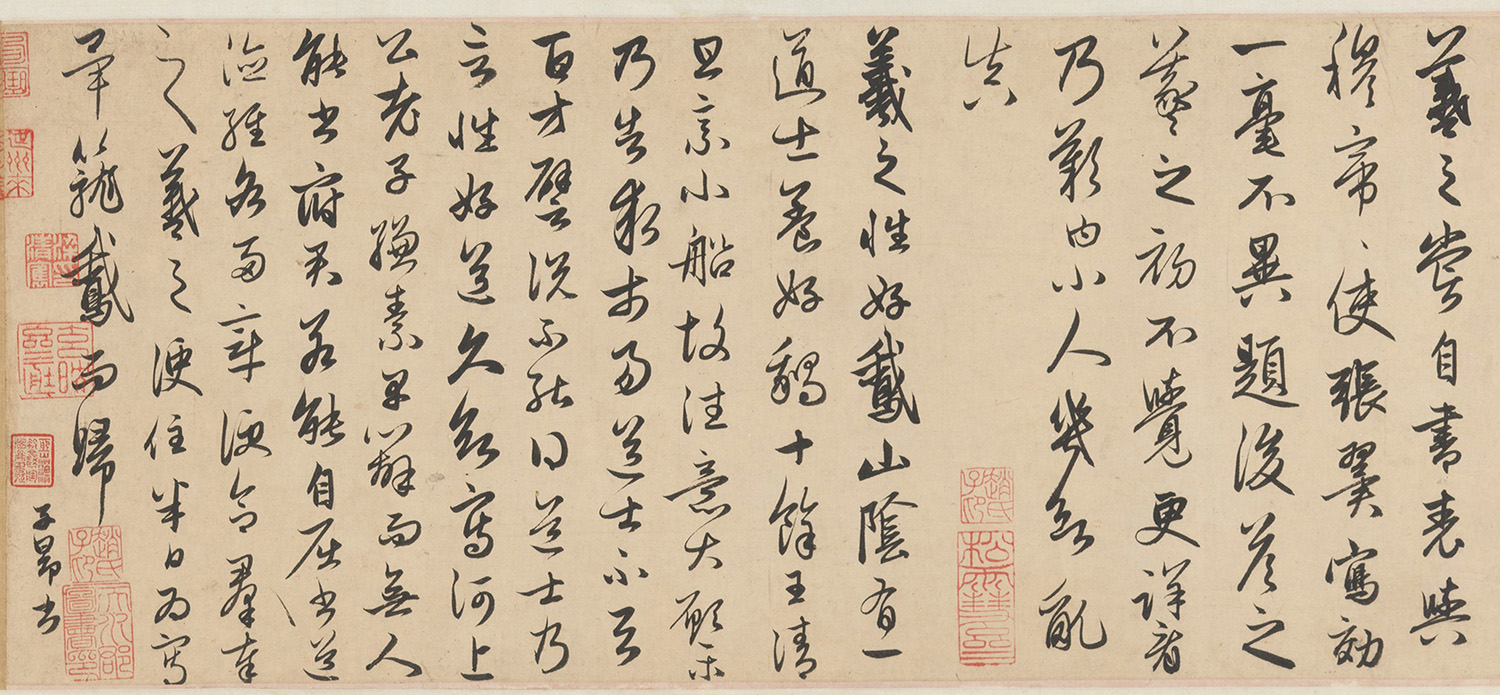 羲之嘗自書表與
穆帝〻使張翼寫効
一毫不異題後答之
羲之初不覺更詳看
乃歎曰小人幾欲亂
真
羲之性好鵞山陰有一
道士養好鵝十餘王清
旦乘小船故往意大願樂
乃告求市易道士不與
百方譬說不能得道士乃
言性好道久欲寫河上
公老子縑素早辦而無人
能書府君若能自屈書道
德經各兩章便合羣奉
之羲之便住半日為寫
畢籠鵞而歸
子昂書
趙氏子昂
松雪齋
趙氏子昂
天水郡圖書印